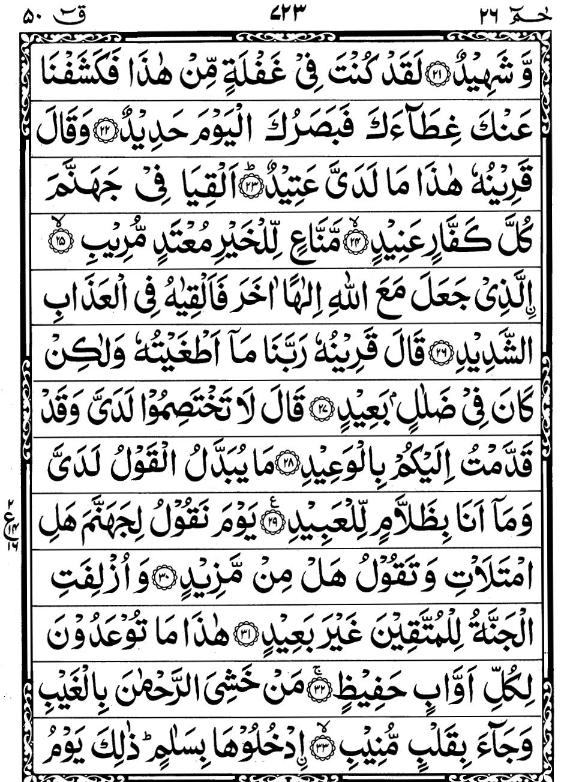 حٰمٓ ٢٦ ٧٢٣ قٓ ٥٠
وَّ شَهِيْدٌ ﴿٢١﴾ لَقَدْ كُنْتَ فِيْ غَفْلَةٍ مِّنْ هٰذَا فَكَشَفْنَا
عَنْكَ غِطَآءَكَ فَبَصَرُكَ الْيَوْمَ حَدِيْدٌ ﴿٢٢﴾ وَقَالَ
قَرِيْنُهٗ هٰذَا مَا لَدَيَّ عَتِيْدٌ ﴿٢٣﴾ؕ اَلْقِيَا فِيْ جَهَنَّمَ
كُلَّ كَفَّارٍ عَنِيْدٍ ﴿٢٤﴾ۙ مَّنَّاعٍ لِّلْخَيْرِ مُعْتَدٍ مُّرِيْبِ ﴿٢٥﴾ۙ
اِۨلَّذِيْ جَعَلَ مَعَ اللّٰهِ اِلٰهًا اٰخَرَ فَاَلْقِيٰهُ فِي الْعَذَابِ
الشَّدِيْدِ ﴿٢٦﴾ قَالَ قَرِيْنُهٗ رَبَّنَا مَآ اَطْغَيْتُهٗ وَلٰكِنْ
كَانَ فِيْ ضَلٰلٍۭ بَعِيْدٍ ﴿٢٧﴾ قَالَ لَا تَخْتَصِمُوْا لَدَيَّ وَقَدْ
قَدَّمْتُ اِلَيْكُمْ بِالْوَعِيْدِ ﴿٢٨﴾ مَا يُبَدَّلُ الْقَوْلُ لَدَيَّ
وَمَآ اَنَا بِظَلَّامٍ لِّلْعَبِيْدِ ﴿٢٩﴾ۧ يَوْمَ نَقُوْلُ لِجَهَنَّمَ هَلِ
٢ ع ١٤ ١٦
امْتَلَاْتِ وَتَقُوْلُ هَلْ مِنْ مَّزِيْدٍ ﴿٣٠﴾ وَاُزْلِفَتِ
الْجَنَّةُ لِلْمُتَّقِيْنَ غَيْرَ بَعِيْدٍ ﴿٣١﴾ هٰذَا مَا تُوْعَدُوْنَ
لِكُلِّ اَوَّابٍ حَفِيْظٍ ﴿٣٢﴾ۚ مَنْ خَشِيَ الرَّحْمٰنَ بِالْغَيْبِ
وَجَآءَ بِقَلْبٍ مُّنِيْبِ ﴿٣٣﴾ۙ اِۨدْخُلُوْهَا بِسَلٰمٍؕ ذٰلِكَ يَوْمُ